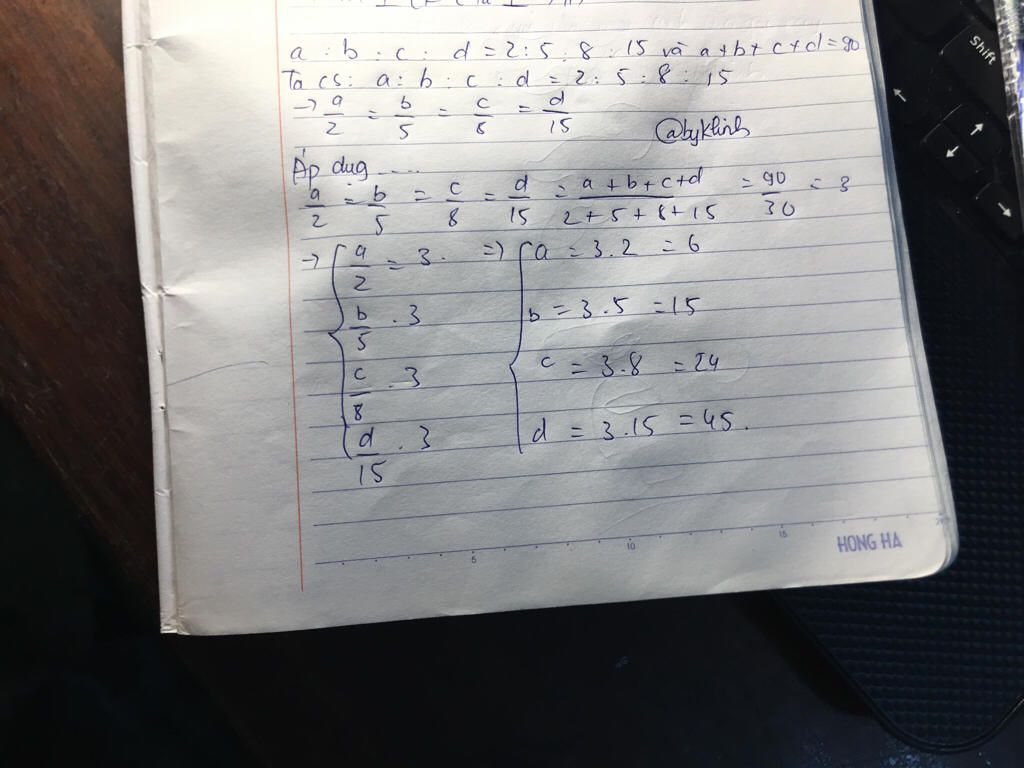 a : b : c : d = 2 : 5 : 8 : 15 và a + b + c + d = 90
Ta có: a : b : c : d = 2 : 5 : 8 : 15
→ a/2 = b/5 = c/8 = d/15
@byklinh
Áp dug ....
a/2 = b/5 = c/8 = d/15 = (a + b + c + d)/(2 + 5 + 8 + 15) = 90/30 = 3
→ { a/2 = 3. => { a = 3.2 = 6
b/5 . 3 b = 3.5 = 15
c/8 . 3 c = 3.8 = 24
d/15 . 3 d = 3.15 = 45.
5 10 15
HONG HA
Shift